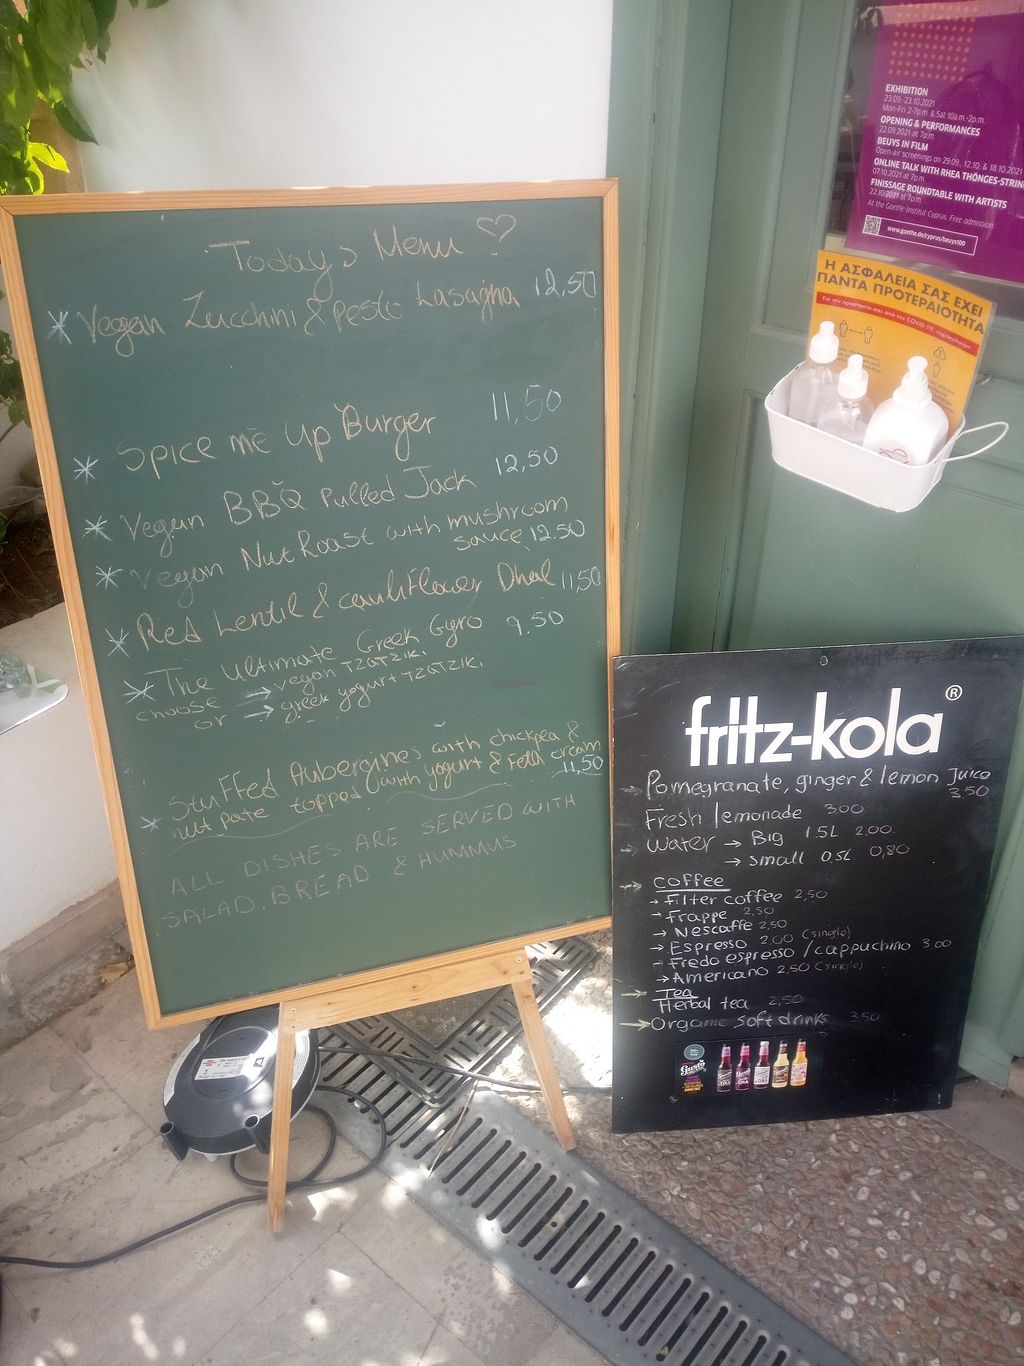 Today's Menu
* Vegan Zucchini & Pesto Lasagna 12,50
* Spice me up Burger 11,50
* Vegan BBQ Pulled Jack 12,50
* Vegan Nut Roast with mushroom
sauce 12.50
* Red Lentil & cauliflower Dhal 11,50
* The ultimate Greek Gyro 9.50
choose → vegan TZATZIKI
or → greek yogurt TZATZIKI
* Stuffed Aubergines with chickpea &
nut pate topped with yogurt & Feta cream
11,50
ALL DISHES ARE SERVED WITH
SALAD, BREAD & HUMMUS
EXHIBITION
23.09.-23.10.2021
Mon-Fri 2-7p.m. & Sat 10a.m.-2p.m.
OPENING & PERFORMANCES
22.09.2021 at 7p.m.
BEUYS IN FILM
Open-air screenings on 29.09., 12.10. & 18.10.2021
ONLINE TALK WITH RHEA THÖNGES-STRIN
07.10.2021 at 7p.m.
FINISSAGE ROUNDTABLE WITH ARTISTS
22.10.2021 at 7p.m.
At the Goethe-Institut Cyprus. Free admission
www.goethe.de/cyprus/beuys100
Η ΑΣΦΑΛΕΙΑ ΣΑΣ ΕΧΕΙ
ΠΑΝΤΑ ΠΡΟΤΕΡΑΙΟΤΗΤΑ
Για την προστασία σας από τον COVID-19, παρακαλούμε
fritz-kola ®
Pomegranate, ginger & lemon Juice
3,50
Fresh lemonade 3.00
Water → Big 1.5L 2,00
→ small 0.5L 0,80
→ Coffee
→ Filter coffee 2,50
→ Frappe 2,50
→ Nescaffe 2,50
→ Espresso 2.00 (single)
→ Fredo espresso / cappuchino 3.00
→ Americano 2,50 (single)
→ Tea
Herbal tea 2,50
→ Organic soft drinks 3.50